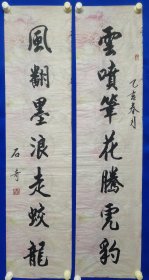 雲噴筆花騰虎豹
乙亥春月
風翻墨浪走蛟龍
石奇